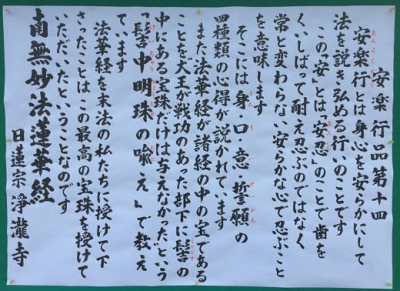 安楽行品第十四
安楽行とは身心を安らかにして
法を説き弘める行いのことです
この「安」とは「安忍」のことで歯を
くいしばって耐え忍ぶのではなく、
常と変わらない安らかな心で忍ぶこと
を意味します
そこには身・口・意・誓願の
四種類の心得が説かれています
また法華経が諸経の中の宝である
ことを大王が戦功のあった部下に髻の
中にある宝珠だけは与えなかったという
「髻中明珠の喩え」で教え
ています
法華経を末法の私たちに授けて下
さったことはこの最高の宝珠を授けて
いただいたということなのです
南無妙法蓮華経
日蓮宗 浄瀧寺